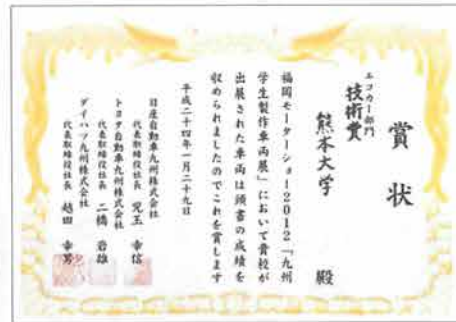 賞状
エコカー部門
技術賞
熊本大学 殿
福岡モーターショー2012「九州
学生製作車両展」において貴校が
出展された車両は頭書の成績を
収められましたのでこれを賞します
平成二十四年一月二十九日
日産自動車九州株式会社
代表取締役社長 児玉 幸信
トヨタ自動車九州株式会社
代表取締役社長 二橋 岩雄
ダイハツ九州株式会社
代表取締役社長 越田 幸男